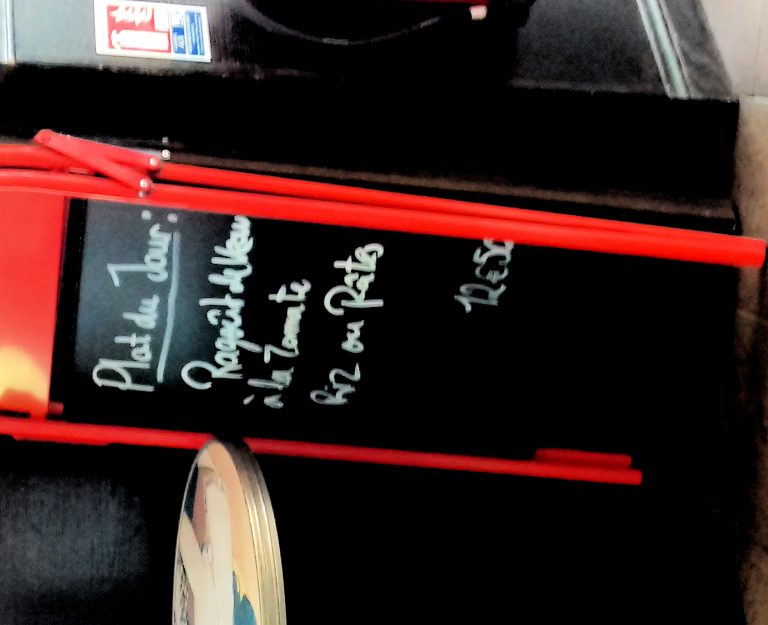 Plat du Jour :
Ragoût de Veau
à la Tomate
Riz ou Pâtes
12€50